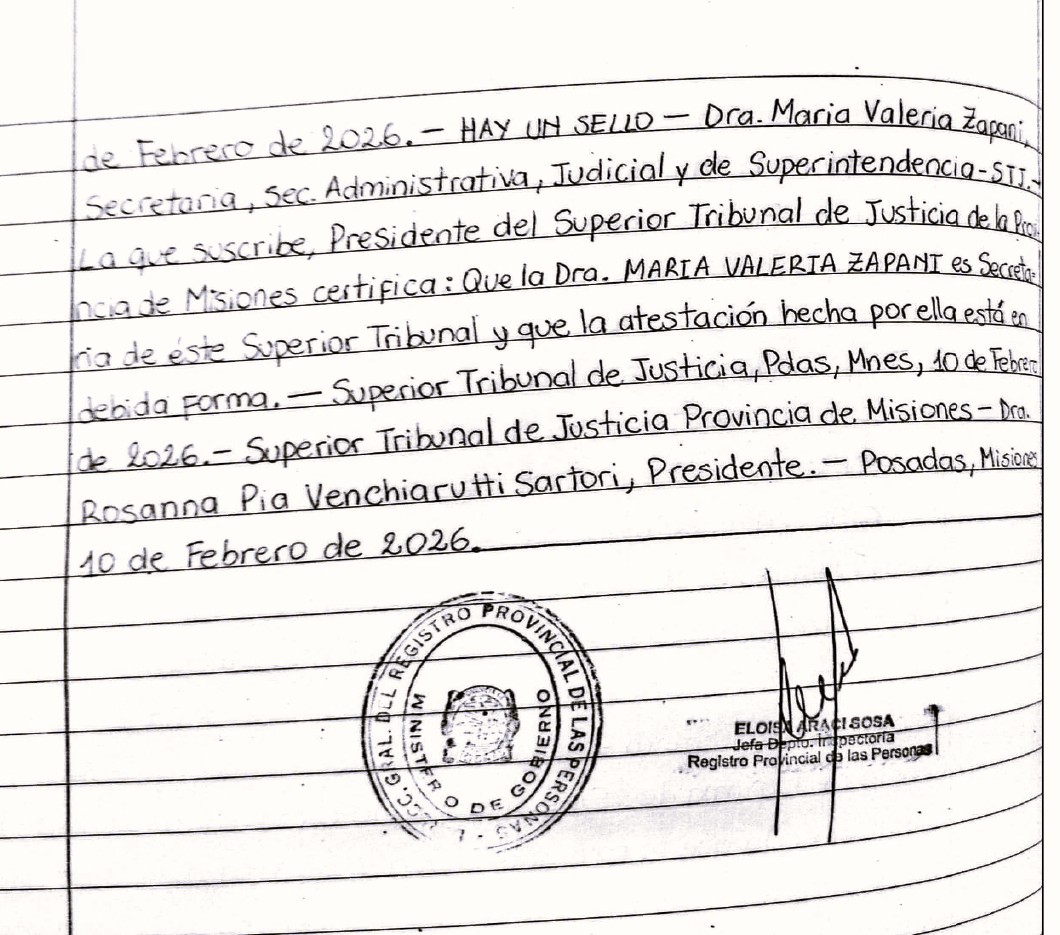 de Febrero de 2026.- HAY UN SELLO - Dra. Maria Valeria Zapani,
Secretaria, Sec. Administrativa, Judicial y de Superintendencia-STJ.-
La que suscribe, Presidente del Superior Tribunal de Justicia de la Provi
ncia de Misiones certifica: Que la Dra. MARIA VALERIA ZAPANI es Secreta-
ria de éste Superior Tribunal y que la atestación hecha por ella está en
debida forma. - Superior Tribunal de Justicia, Pdas, Mnes, 10 de Febrero
de 2026.- Superior Tribunal de Justicia Provincia de Misiones - Dra.
Rosanna Pia Venchiarutti Sartori, Presidente. - Posadas, Misiones
10 de Febrero de 2026.
GRAL. DEL REGISTRO PROVINCIAL DE LAS PERSONAS
MINISTERIO DE GOBIERNO
ELOISA ARACI SOSA
Jefa Depto. Inspectoría
Registro Provincial de las Personas